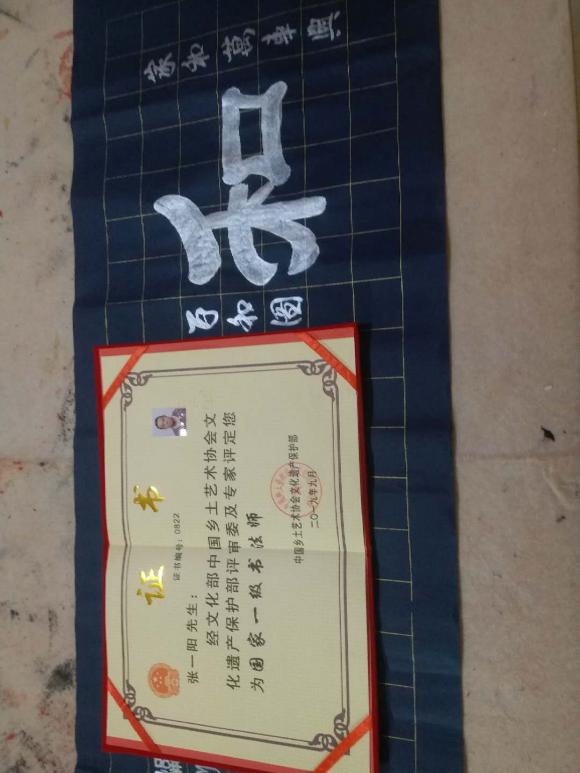 家和萬事興
和
和圖
证书
证书编号：0822
张一阳先生：
经文化部中国乡土艺术协会文
化遗产保护部评审委及专家评定您
为国家一级书法师
中国乡土艺术协会文化遗产保护部
二〇一九年九月